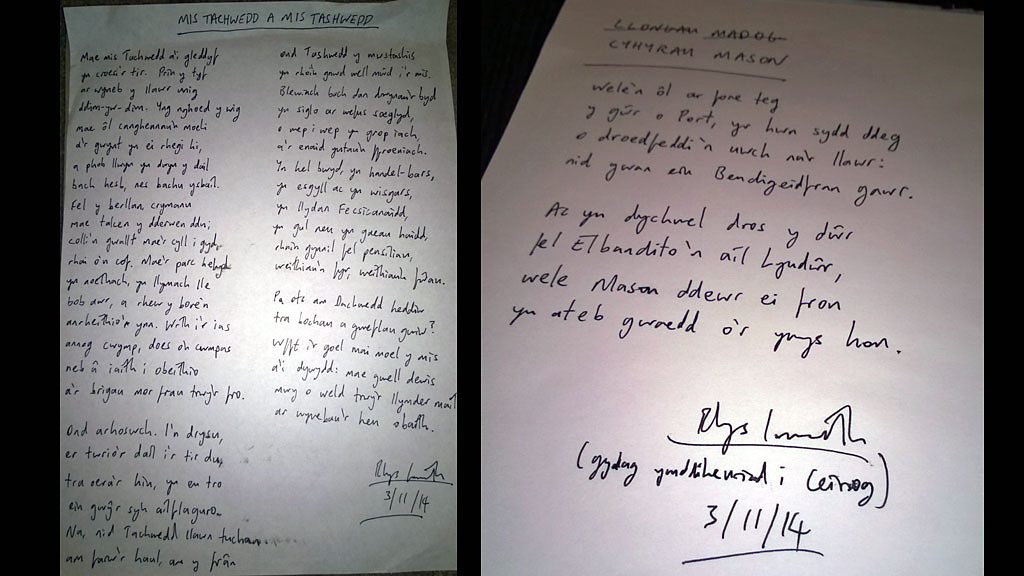 MIS TACHWEDD A MIS TASHWEDD
Mae mis Tachwedd a'i gleddyf
yn croesi'r tir. Prin y tyf
ar wyneb y llawr unig
ddim-yw-dim. Yng nghoed y wig
mae ôl canghennau'n moeli
a'r gwynt yn ei rhegi hi,
a phob llwyn yn dwyn y dail
bach hesb, nes bachu ysbail.
Fel y berllan, crymanu
mae talcen y dderwen ddu;
colli'n gwallt mae'r cyll i gyd,
rhai o'n cof. Mae'r parc hefyd
yn noethach, yn llymach lle
bob awr, a rhew y bore'n
anrheithio'r ynn. Wrth i'r ias
annog cwymp, does o'n cwmpas
neb â iaith i obeithio
a'r brigau mor frau trwy'r fro.
Ond arhoswch. I'n drysu,
er twrio'r dail i'r tir du,
tra oera'r hin, yn eu tro
ein gwŷr sy'n ailflaguro.
Na, nid Tachwedd llawn tuchan
am farw'r haul, am y frân
ond Tashwedd y mwstashis
yn rhoi gnwd well i'r mis.
Blewiach boch dan drwynau'r byd
yn siglo ar welus soeglyd,
o wep i wep yn grop iach,
a'r enaid gutau'n ffroeniach.
Yn hel bwyd, yn handel-bars,
yn esgyll ac yn wisgars,
yn llydan Fecsicanaidd,
yn gul neu yn gaeau haidd,
rhai'n gynnil fel pensiliau,
weithiau'n fyr, weithiau'n frau.
Pa ots am Dachwedd heddiw
tra bochau a gweflau gwiw?
Wfft i'r goel mai moel y mis
a'i dywydd: mae gwell dewis
mwy o weld trwy'r llymder maith
ar wynebau'r hen obaith.
Rhys Iorwerth
3/11/14
LLONGAU MADOG
CYHYRAU MASON
Wele'n ôl ar fore teg
y gŵr o Port, yr hwn sydd ddeg
o droedfeddi'n uwch na'r llawr:
nid gwan ein Bendigeidfran gawr.
Ac yn dychwel dros y dŵr
fel El Bandito'n ail Lyndŵr,
wele Mason ddewr ei fron
yn ateb gwaedd o'r ynys hon.
Rhys Iorwerth
(gydag ymddiheuriad i Ceiriog)
3/11/14